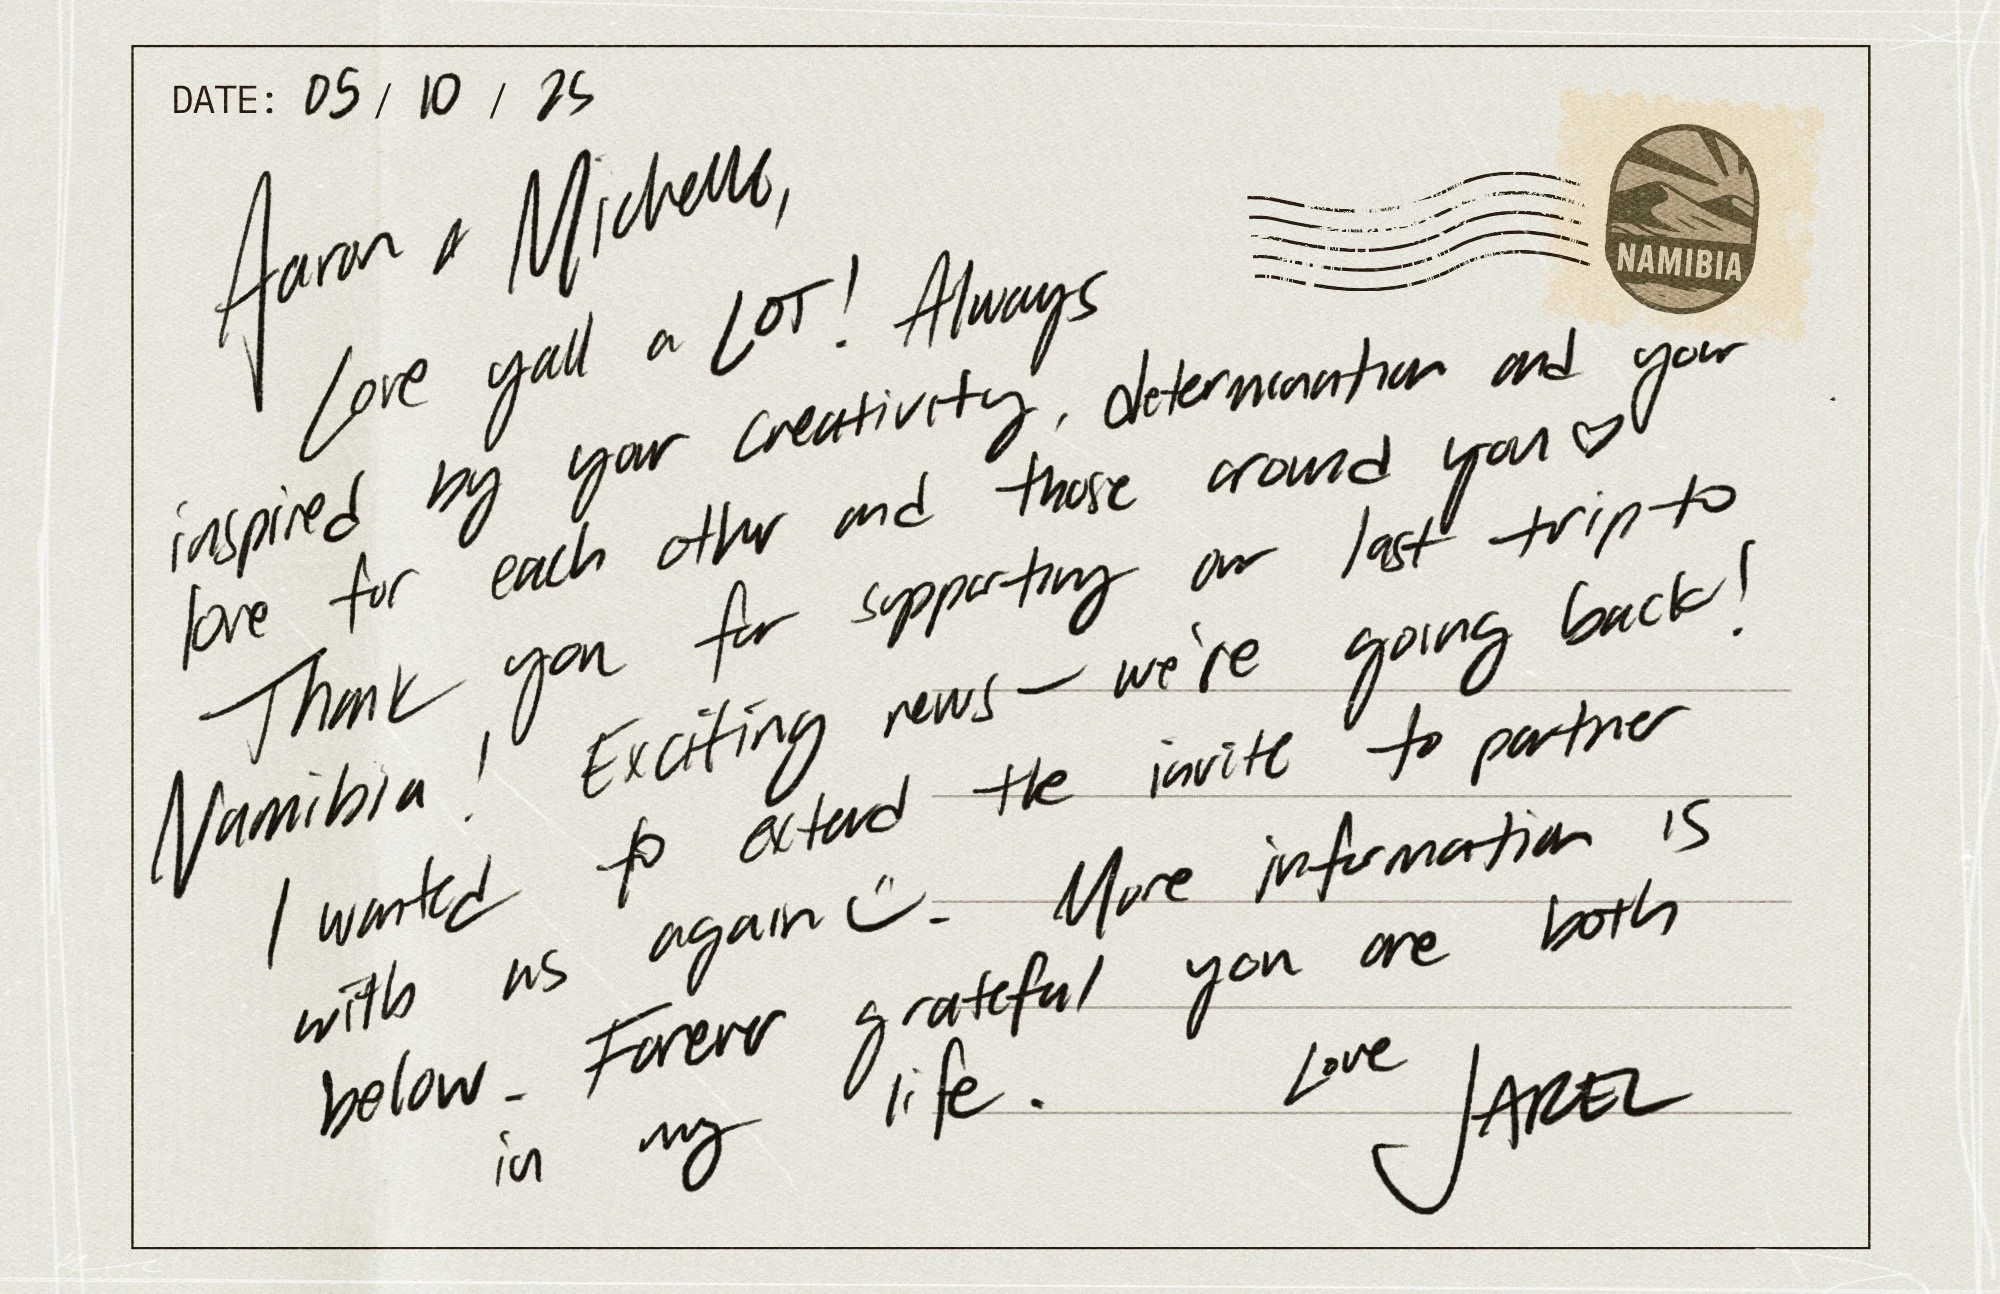 DATE: 05 / 10 / 25
Aaron & Michelle,
NAMIBIA
Love yall a LOT! Always
inspired by your creativity, determination and your
love for each other and those around you ♡
Thank you for supporting our last trip to
Namibia! Exciting news — we're going back!
I wanted to extend the invite to partner
with us again :). More information is
below. Forever grateful you are both
in my life.
Love
JAREL